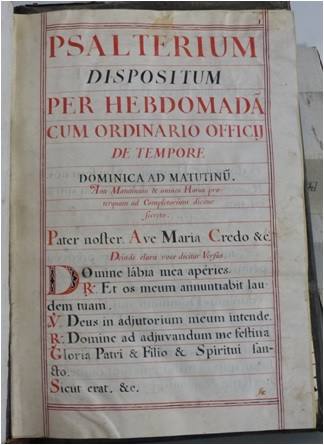 PSALTERIUM
DISPOSITUM
PER HEBDOMADÃ
CUM ORDINARIO OFFICIJ
DE TEMPORE
DOMINICA AD MATUTINŨ.
Ante Matutinum & omnes Horas præ-
terquam ad Completorium dicitur
secreto.
Pater noster. Ave Maria Credo &c.
Deinde clara voce dicitur Versus.
Domine lábia mea apéries.
R. Et os meum annuntiabit lau-
dem tuam.
V. Deus in adjutorium meum intende.
R. Domine ad adjuvandum me festina
Gloria Patri & Filio & Spiritui san-
cto.
Sicut erat, &c.